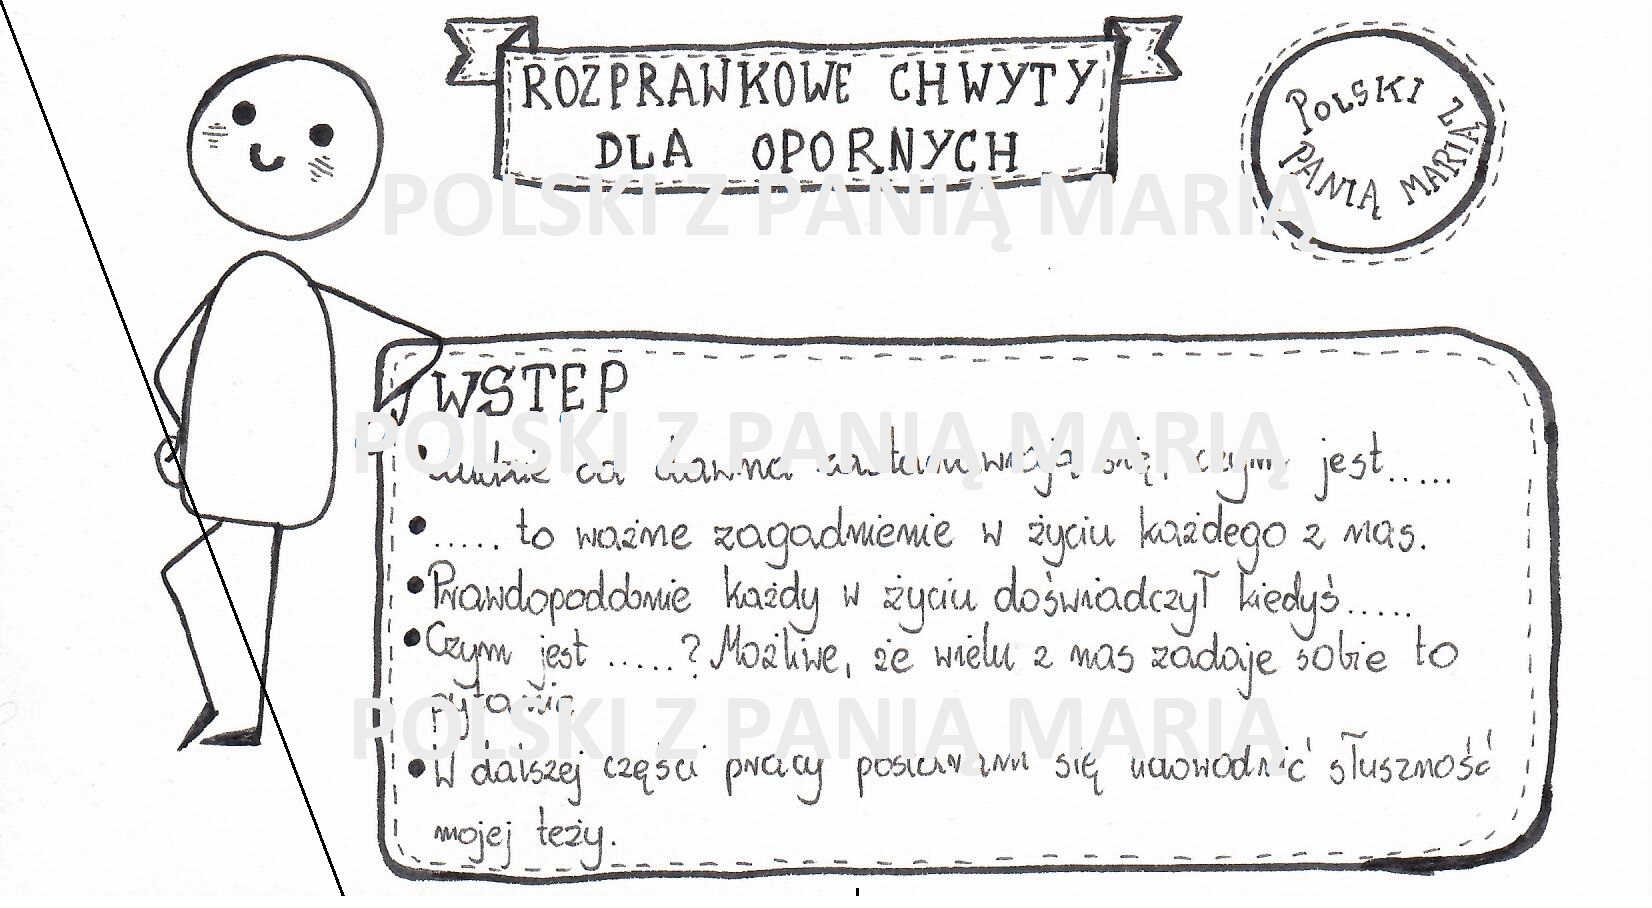 ROZPRAWKOWE CHWYTY
DLA OPORNYCH
POLSKI Z
PANIĄ MARIĄ
POLSKI Z PANIĄ MARIĄ
WSTĘP
POLSKI Z PANIĄ MARIĄ
• Ludzie od dawna zastanawiają się, czym jest.....
• ..... to ważne zagadnienie w życiu każdego z nas.
• Prawdopoddobnie każdy w życiu doświadczył kiedyś.....
• Czym jest .....? Możliwe, że wielu z nas zadaje sobie to
pytanie
POLSKI Z PANIĄ MARIĄ
• W dalszej części pracy postaram się udowodnić słuszność
mojej tezy.